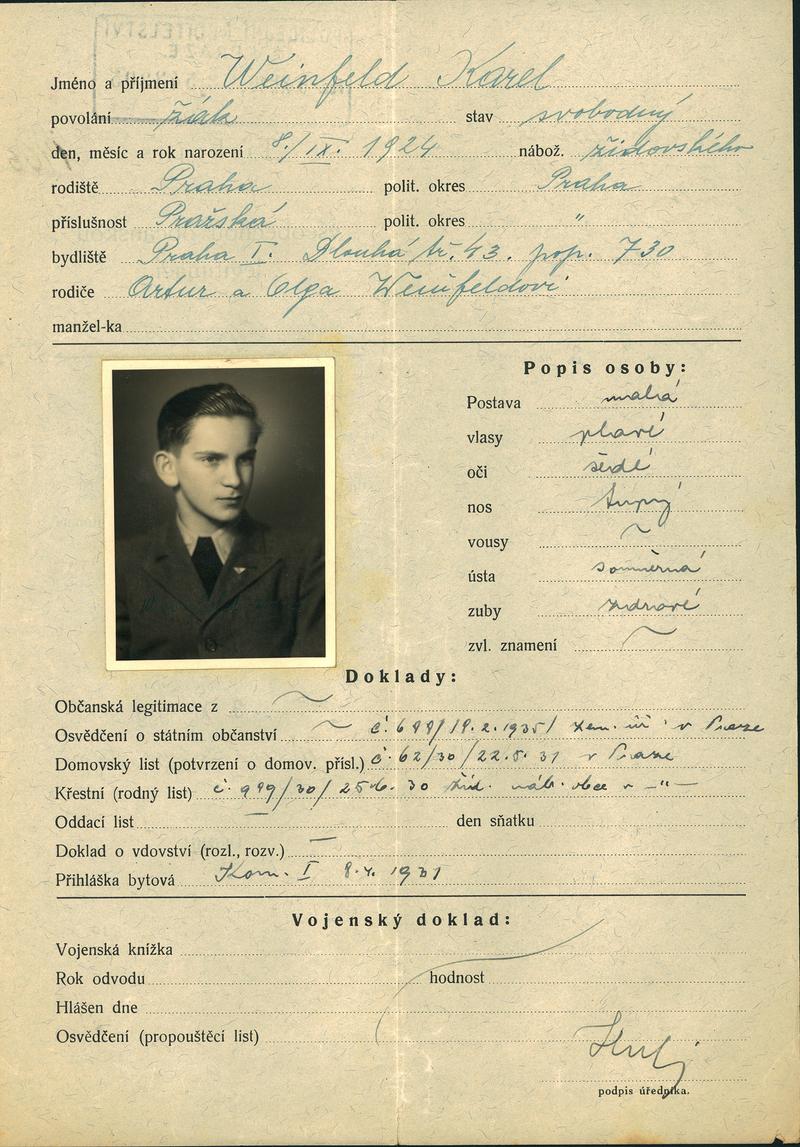 Jméno a příjmení Weinfeld Karel
povolání žák stav svobodný
den, měsíc a rok narození 8./IX. 1924 nábož. židovského
rodiště Praha polit. okres Praha
příslušnost Pražská polit. okres "
bydliště Praha I. Dlouhá tř. 43. pop. 730
rodiče Artur a Olga Weinfeldovi
manžel-ka
Popis osoby:
Postava malá
vlasy plavé
oči šedé
nos tupý
vousy ~
ústa souměrná
zuby zdravé
zvl. znamení ~
Doklady:
Občanská legitimace z ~
Osvědčení o státním občanství ~ č. 699/19.2.1935/ zem. úř. v Praze
Domovský list (potvrzení o domov. přísl.) č. 62/30/22.5.31 v Praze
Křestní (rodný list) č. 999/30/25.6.30 žid. náb. obce v -"-
Oddací list — den sňatku
Doklad o vdovství (rozl., rozv.) —
Přihláška bytová Kom. I 1931
Vojenský doklad:
Vojenská knížka
Rok odvodu hodnost
Hlášen dne
Osvědčení (propouštěcí list)
podpis úředníka.